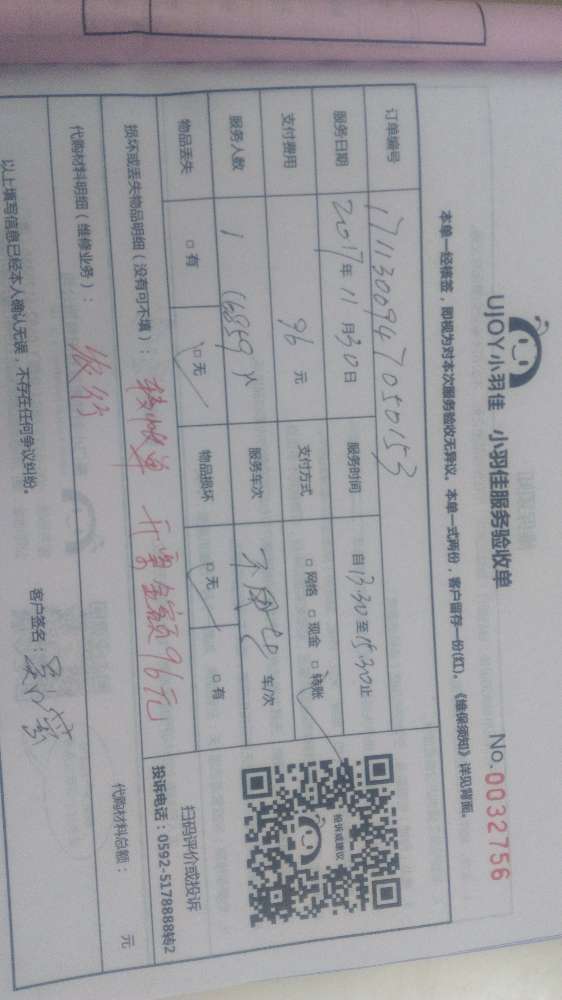 UJOY小羽佳 小羽佳服务验收单 No.0032756
本单一经镜签，即视为对本次服务验收无异议。本单一式两份，客户留存一份(红)。《维保须知》详见背面。
订单编号 1711300947050153
服务日期 2017年11月30日 服务时间 自13:30至15:30止
支付费用 96元 支付方式 □网络 □现金 □转账
服务人数 1 (6859) 人 服务车次 车/次
物品丢失 □有 □无 物品损坏 □无 □有
投诉或建议
扫码评价或投诉
投诉电话：0592-5178888转2
损坏或丢失物品明细（没有可不填）： 转账单 开票金额96元
代购材料明细（维修业务）： 代购材料总额： 元
以上填写信息已经本人确认无误，不存在任何争议纠纷。 客户签名：